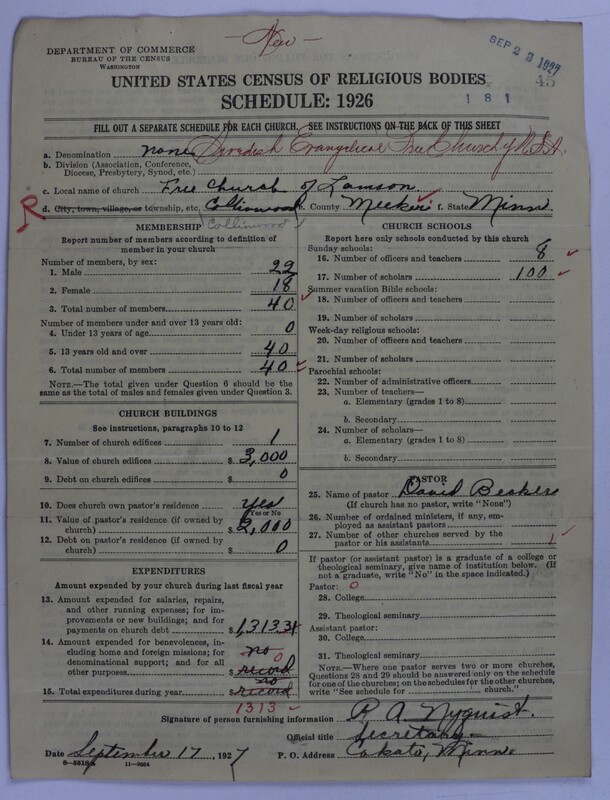 — New —
SEP 23 1927
DEPARTMENT OF COMMERCE
BUREAU OF THE CENSUS
WASHINGTON
45
UNITED STATES CENSUS OF RELIGIOUS BODIES
SCHEDULE: 1926
1 8 1
FILL OUT A SEPARATE SCHEDULE FOR EACH CHURCH. SEE INSTRUCTIONS ON THE BACK OF THIS SHEET
a. Denomination none Swedish Evangelical Free Church of U.S.A.
b. Division (Association, Conference, Diocese, Presbytery, Synod, etc.)
c. Local name of church Free Church of Lamson
R d. City, town, village, or township, etc. Collinwood e. County Meeker f. State Minn
Collinwood
MEMBERSHIP
Report number of members according to definition of member in your church
Number of members, by sex:
1. Male 22
2. Female 18
3. Total number of members 40
Number of members under and over 13 years old:
4. Under 13 years of age 0
5. 13 years old and over 40
6. Total number of members 40
NOTE.—The total given under Question 6 should be the same as the total of males and females given under Question 3.
CHURCH BUILDINGS
See instructions, paragraphs 10 to 12
7. Number of church edifices 1
8. Value of church edifices $ 3,000
9. Debt on church edifices $ 0
10. Does church own pastor's residence Yes
(Yes or No)
11. Value of pastor's residence (if owned by church) $ 2,000
12. Debt on pastor's residence (if owned by church) $ 0
EXPENDITURES
Amount expended by your church during last fiscal year
13. Amount expended for salaries, repairs, and other running expenses; for improvements or new buildings; and for payments on church debt $ 1,313.31
14. Amount expended for benevolences, including home and foreign missions; for denominational support; and for all other purposes $ no record 0
15. Total expenditures during year $ no record
1313
CHURCH SCHOOLS
Report here only schools conducted by this church
Sunday schools:
16. Number of officers and teachers 8
17. Number of scholars 100
Summer vacation Bible schools:
18. Number of officers and teachers
19. Number of scholars
Week-day religious schools:
20. Number of officers and teachers
21. Number of scholars
Parochial schools:
22. Number of administrative officers
23. Number of teachers—
a. Elementary (grades 1 to 8)
b. Secondary
24. Number of scholars—
a. Elementary (grades 1 to 8)
b. Secondary
PASTOR
25. Name of pastor David
(If church has no pastor, write "None")
26. Number of ordained ministers, if any, employed as assistant pastors
27. Number of other churches served by the pastor or his assistants 1
If pastor (or assistant pastor) is a graduate of a college or theological seminary, give name of institution below. (If not a graduate, write "No" in the space indicated.)
Pastor: 0
28. College
29. Theological seminary
Assistant pastor:
30. College
31. Theological seminary
NOTE.—Where one pastor serves two or more churches, Questions 28 and 29 should be answered only on the schedule for one of the churches; on the schedules for the other churches, write "See schedule for church."
Signature of person furnishing information R. A. Nyquist.
Official title Secretary
Date September 17, 1927 P. O. Address Cokato, Minne